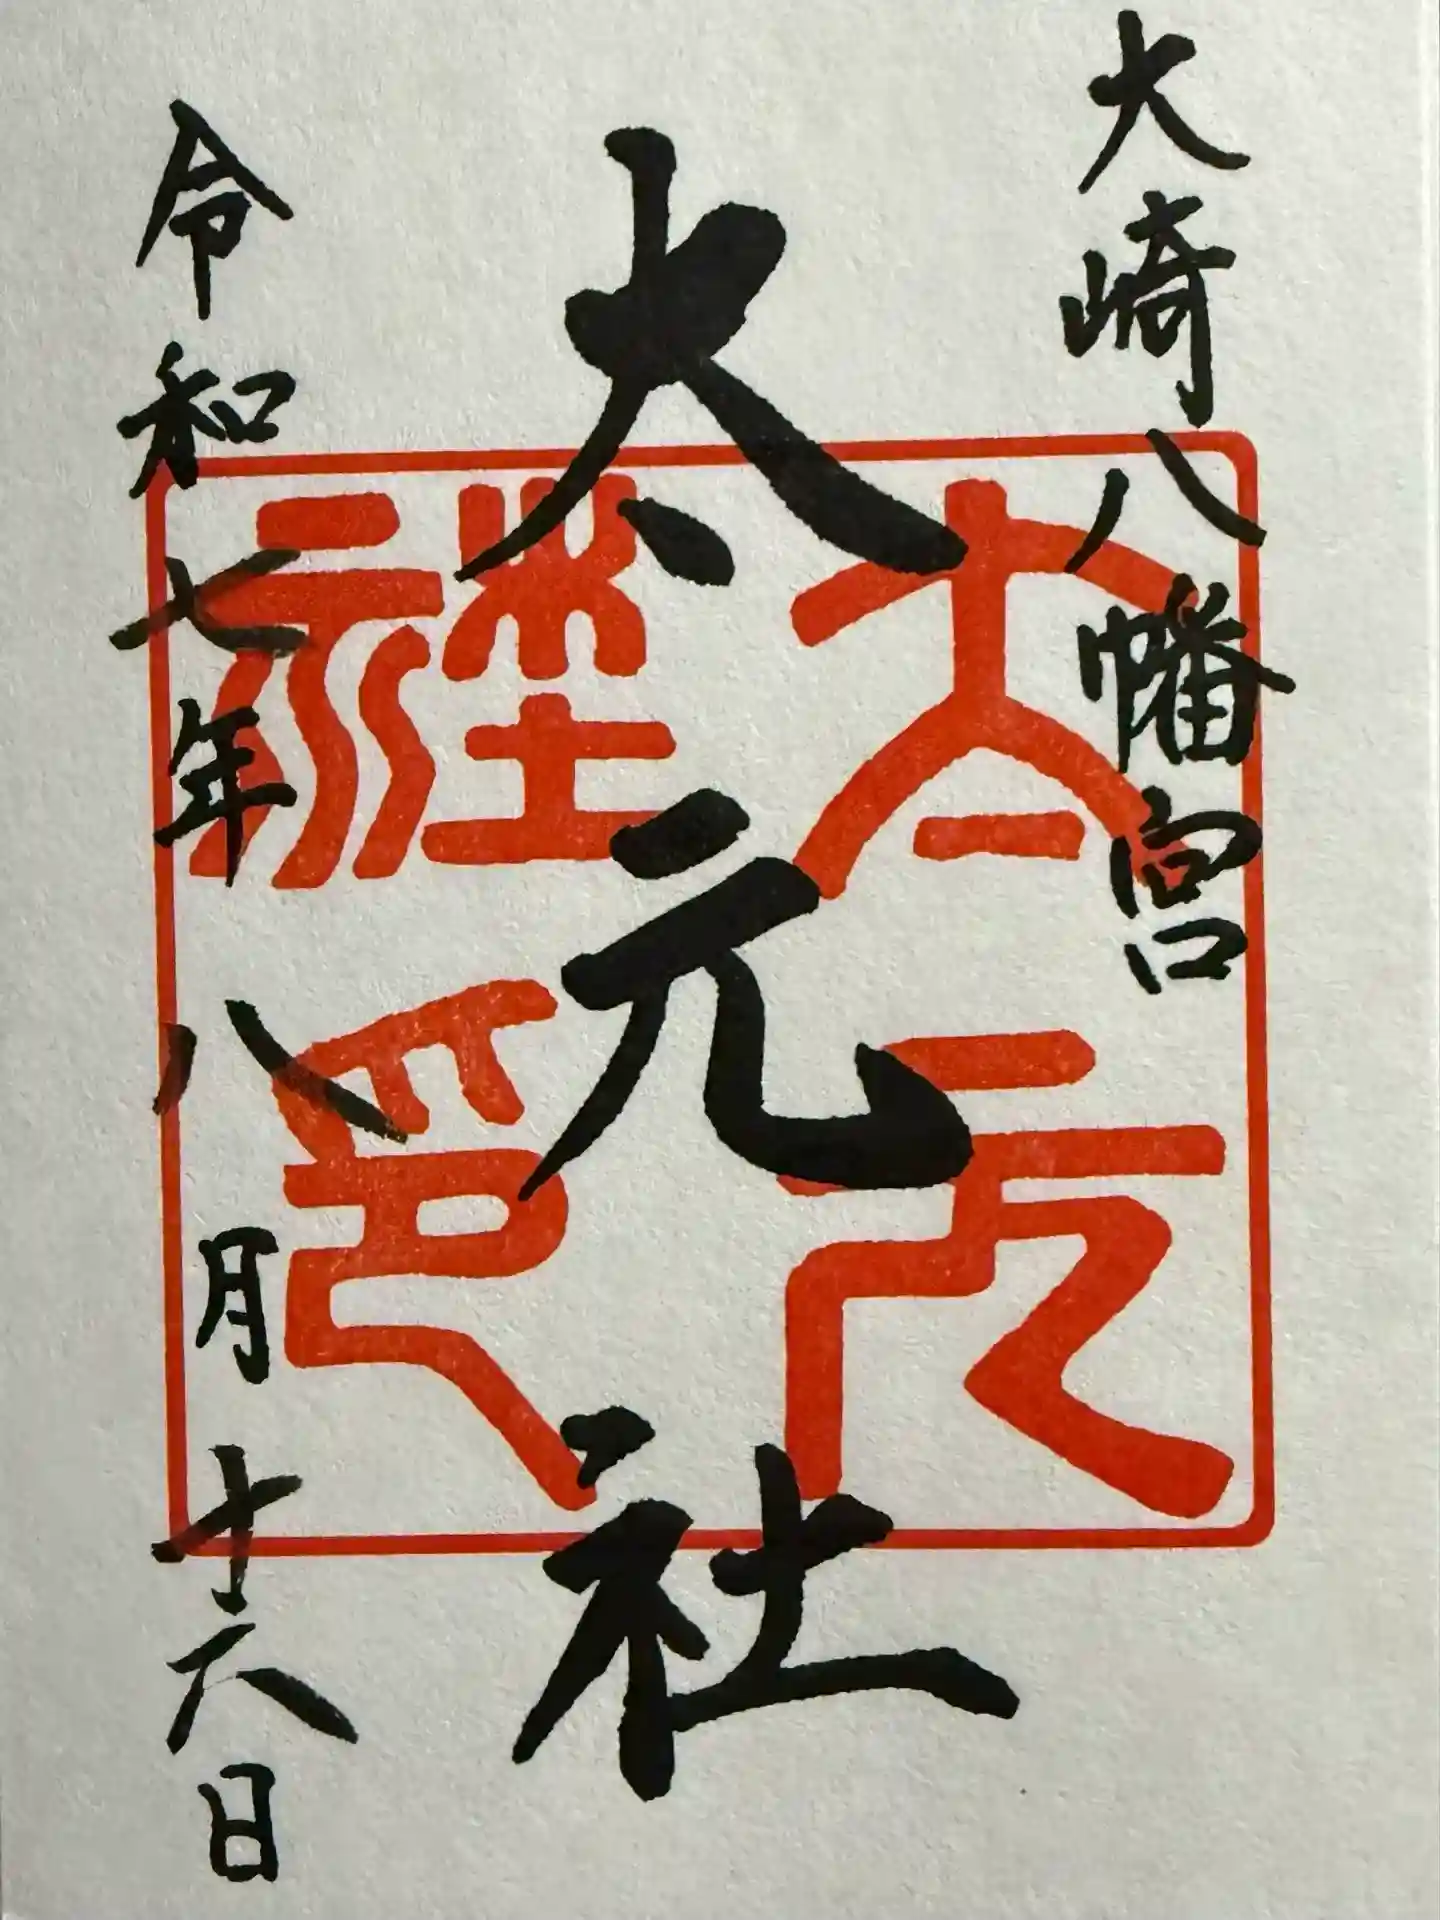 大崎八幡宮
太元社
令和七年八月十六日
太元社印